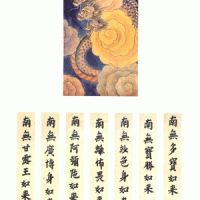 南無多寶如来
南無寶勝如来
南無妙色身如来
南無離怖畏如来
南無阿彌陀如来
南無廣博身如来
南無甘露王如来